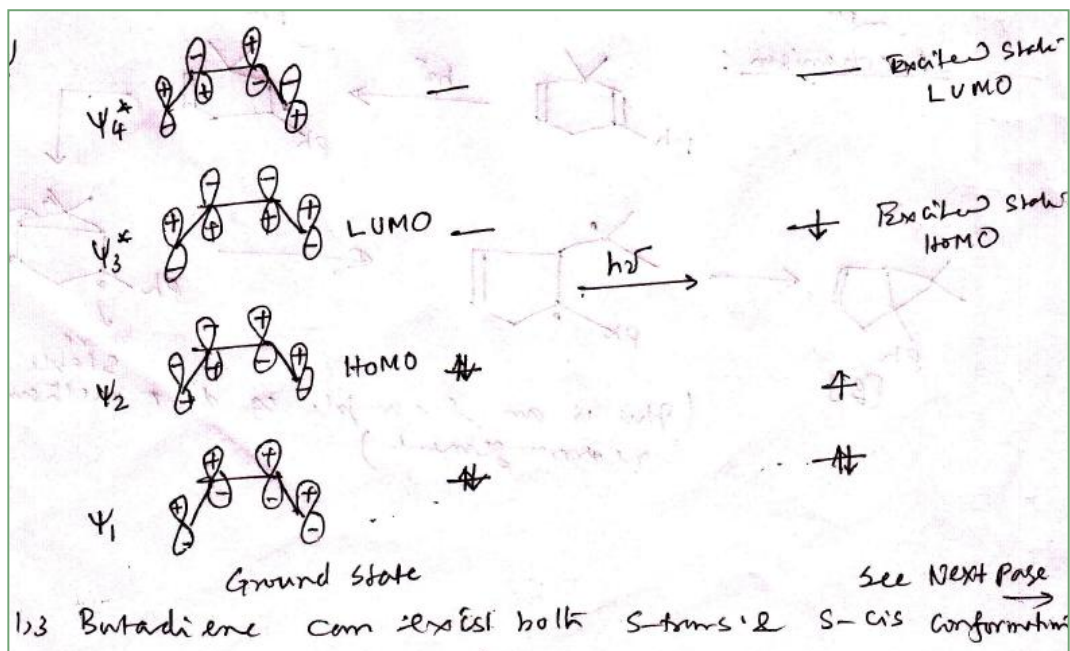 Ψ4*
Excited State
LUMO
Ψ3*
LUMO
Excited State
HOMO
hν
Ψ2
HOMO
Ψ1
Ground state
See Next Page
1,3 Butadiene can exist both S-trans & S-cis conformation